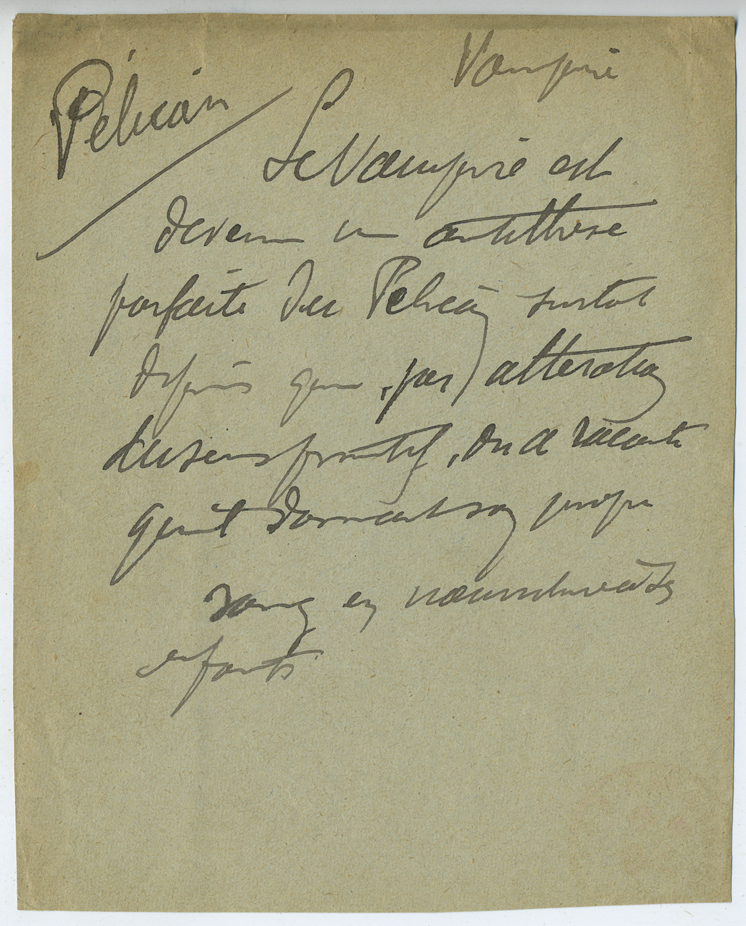 Vampire
Pélican
Le Vampire est
devenu un antithèse
parfaite du Pélican surtout
depuis que, par altération
du sens primitif, on a raconté
qu'il donnait son propre
sang en nourriture à ses
enfants